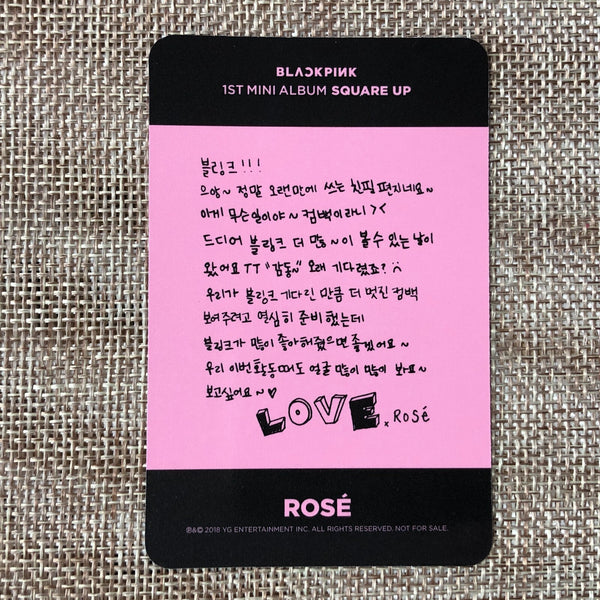 BLACKPINK
1ST MINI ALBUM SQUARE UP
블링크!!!
으앙~ 정말 오랜만에 쓰는 친필 편지네요~
이게 무슨일이야~ 컴백이라니 ><
드디어 블링크 더 많~이 볼수 있는 날이
왔어요 TT "감동~" 오래 기다렸죠? ㅠ
우리가 블링크 기다린 만큼 더 멋진 컴백
보여주려고 열심히 준비했는데
블링크가 많이 좋아해줬으면 좋겠어요~
우리 이번활동때도 얼굴 많이 많이 봐요~
보고싶어요~♡
LOVE x ROSÉ
ROSÉ
℗&© 2018 YG ENTERTAINMENT INC. ALL RIGHTS RESERVED. NOT FOR SALE.